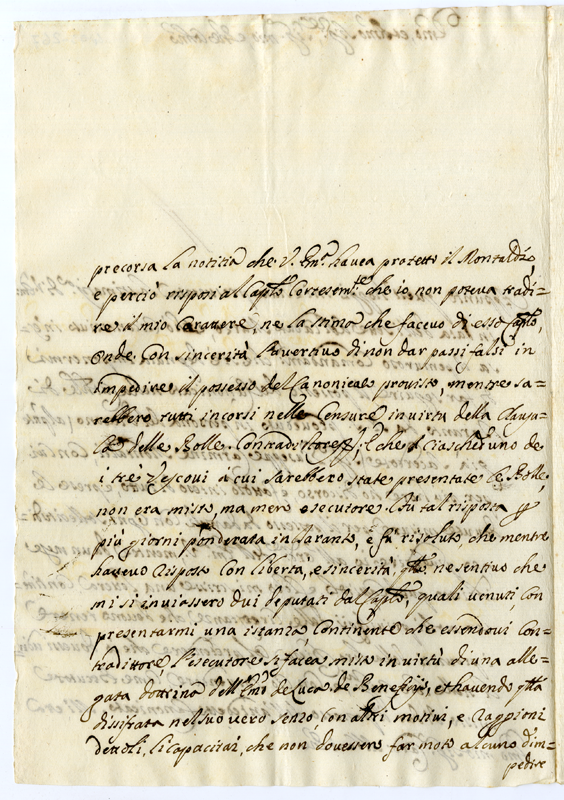 precorsa la notitia che V. Em.ª havea protetto il Montaldi,
e perciò risposi al Cap.lo Cortesem.te che io non poteva tradi=
re il mio Carattere, ne la stima che facevo di esso Cap.lo,
Onde Con sincerità l'avertivo di non dar passi falsi in
impedire il possesso del Canonicato provisto, mentre sa=
rebbero tutti incorsi nelle Censure in virtù della Clausu=
la delle Bolle Contradictores &; e che Ciascheduno de
i trè Vescovi à cui sarebbero state presentate le Bolle,
non era misto, ma mero esecutore. Fù tal risposta p
più giorni ponderata in Taranto, e fù risoluto che mentre
havevo risposto Con libertà, e sincerità, q.to ne sentivo che
mi si inviassero dui deputati dal Cap.lo, quali venuti, con
presentarmi una istanza Continente che essendovi Con=
tradittore, l'esecutore si facea misto in virtù di una alle=
gata dottrina dell'Em.o de Luca de Beneficijs, et havendo q.ta
disifrata nel suo vero senzo con altri motivi, e raggioni
dettoli, li capacitai, che non dovessero far moto alcuno d'im=
pedire